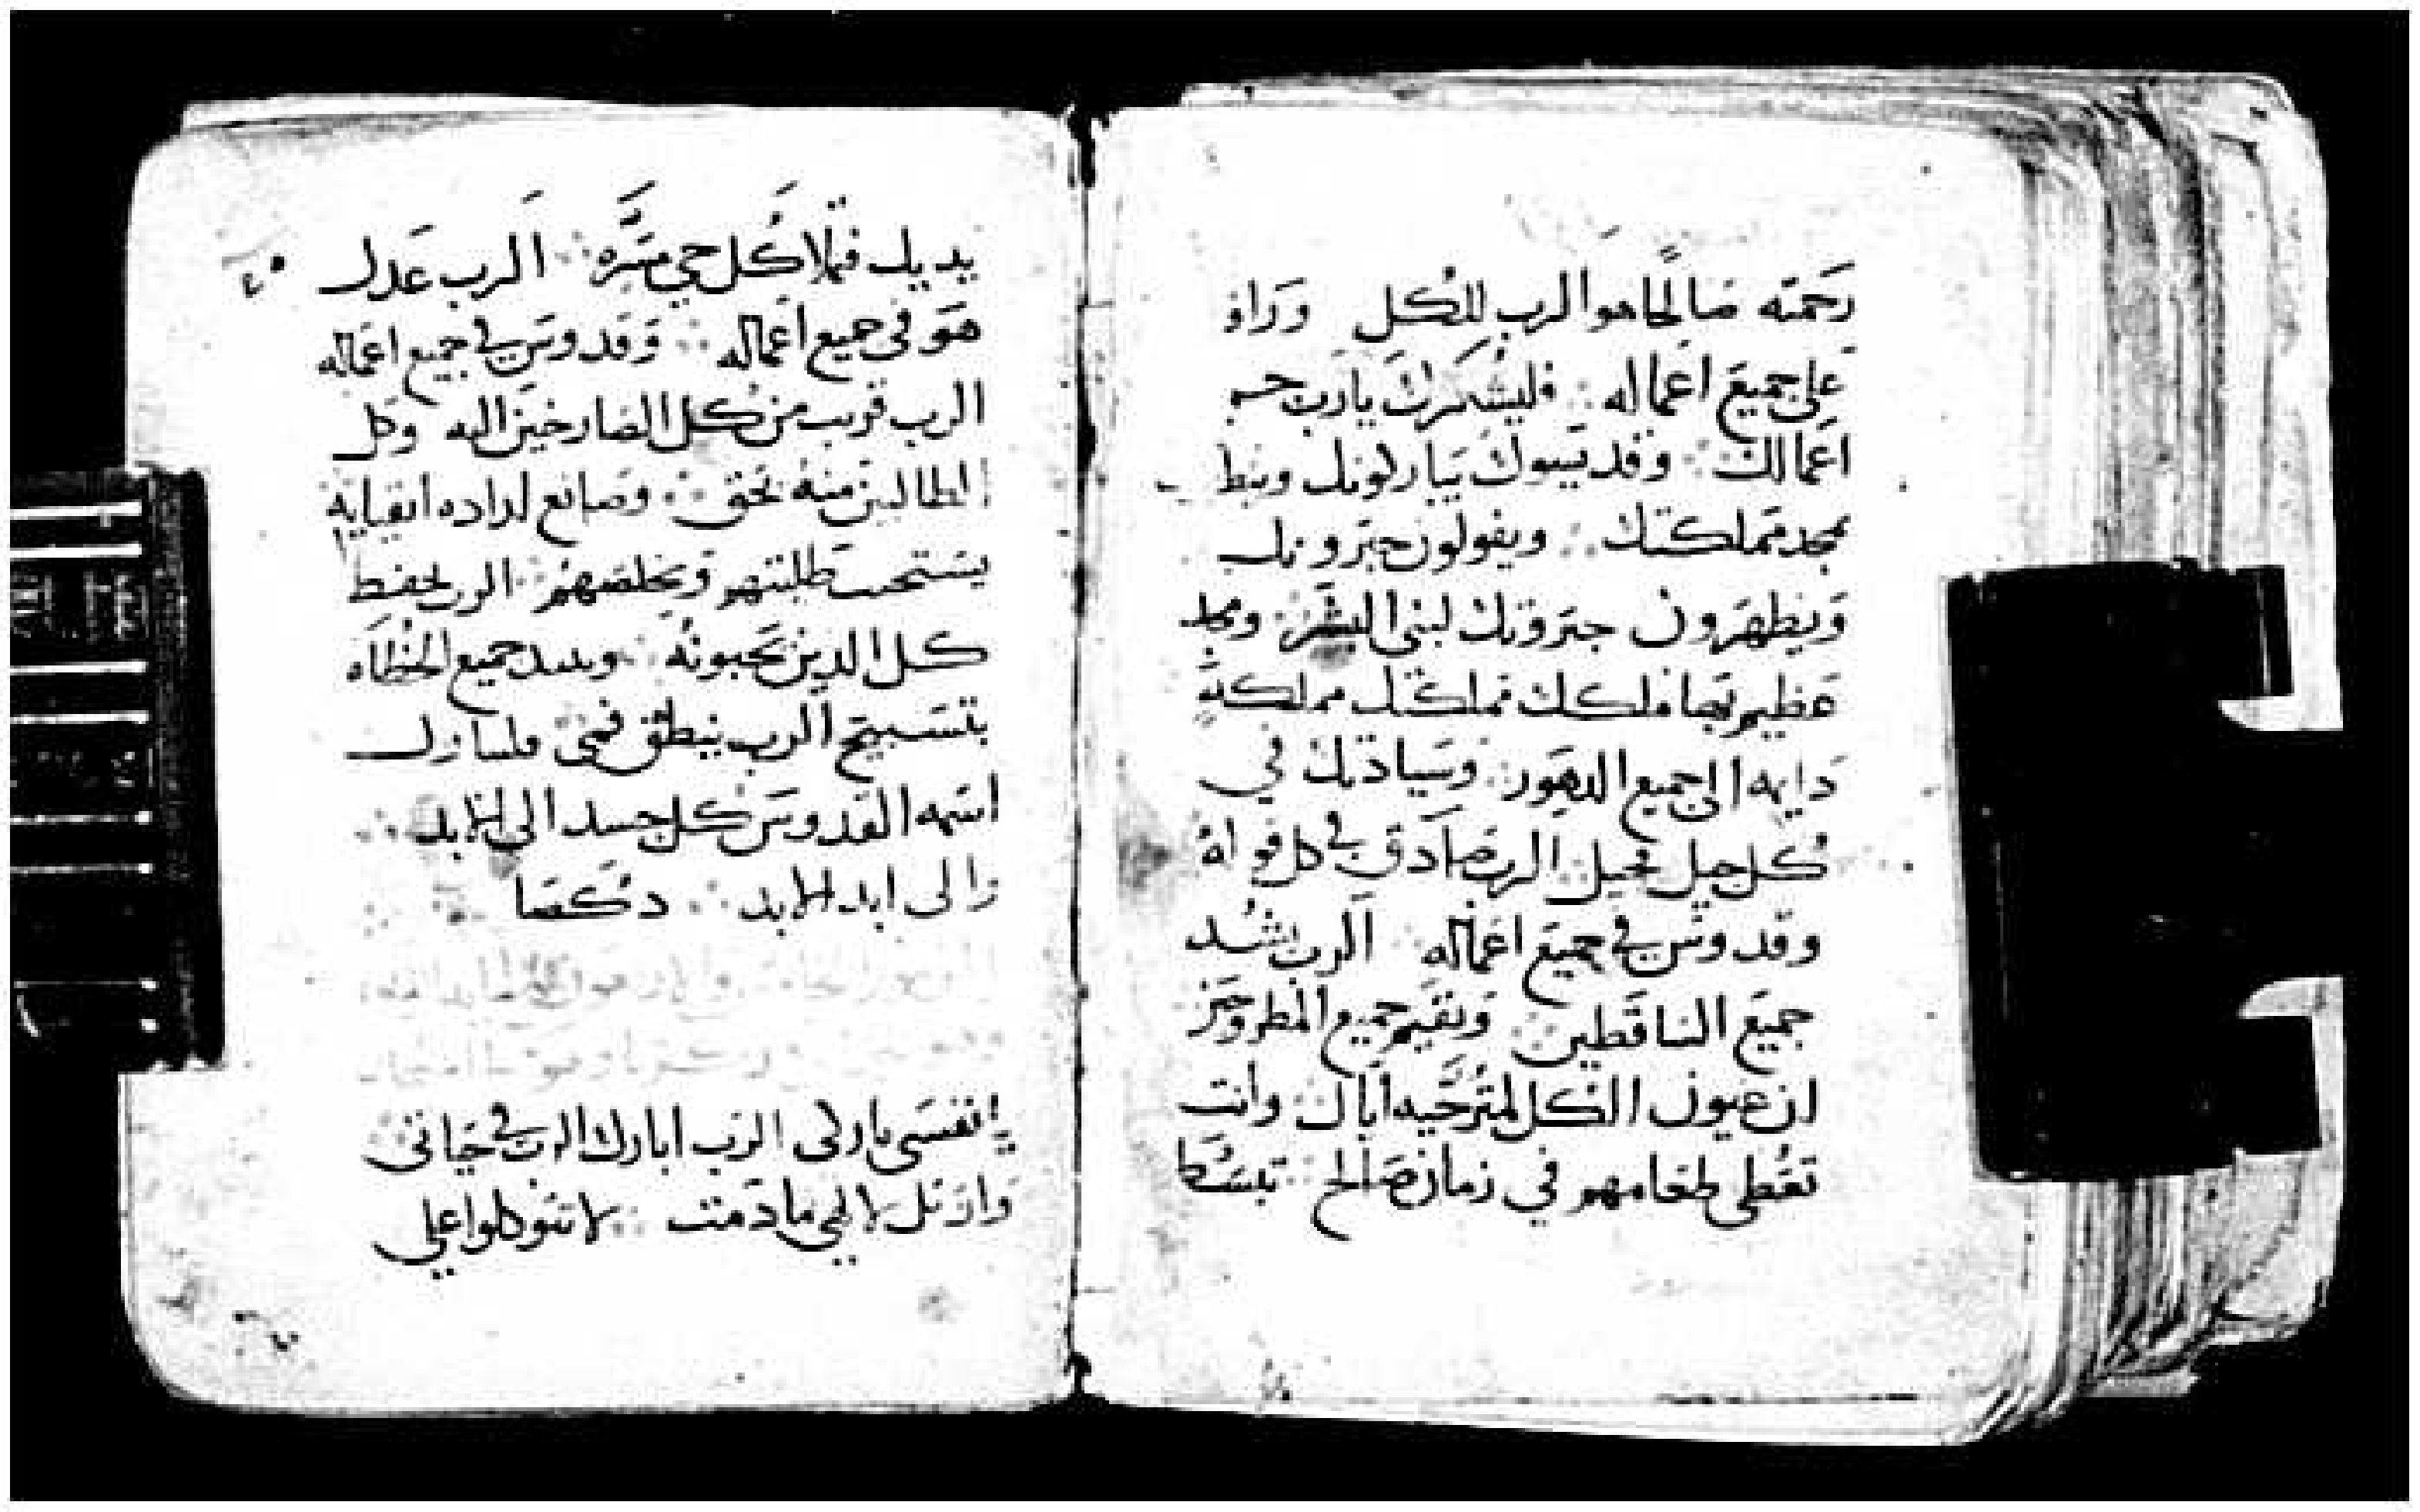 رَحمَته صَالحًا هو الرب للكُل وَرَاو
على جميعَ اعماله ∴ فليشكرك يا رب جم
اعمالك ∴ وقديسوك يباركونك وينط
بمجد مملكتك ∴ ويقولون جبروتك
وَيظهَرون جبَروتك لبني البشَر ∴ ومجد
عَظيم بها ملكك مملكتك مملكة
دَايمه الى جميع الدهَور ∴ وَسيادتك في
كُل جيل فجيل ∴ الرب صَادق في كل اقواله
وقدوسَ في جميَع اعمَاله الرب يشُد
جميَع الساقَطين ∴ وَيقيم جميع المطروحَين
ان عيون الكل لمترُجّيه اياك ∴ وانت
تعُطي طعَامهم في زمان صَالح ∴ تبسُط
يديك فتملا كُل حي مسَره ∴ الرب عَدل
هَو في جميع اعماله ∴ وَقدوسَ في جميع اعمَاله
الرب قريب من كُل الصَارخين اليه وكل
الطالبين منه بحَق ∴ وصَانع اراده اتقيايه
يسَتجيب طَلبتهم وَيخلصَهم ∴ الرب يحفظ
كل الذين يَحبونه ∴ ويبيد جميع الخُطَاه
بتسَبيح الرب ينطق فمي فليبارك
اسَمه القدوسَ كل جسد الى الابد ∴
والى ابد الابد ∴ دكصَا
يا نفسَي باركي الرَب ابارك الرب في حَياتي ∴
وَارتل لالهي ما دَمت ∴ لا تتوكلوا على